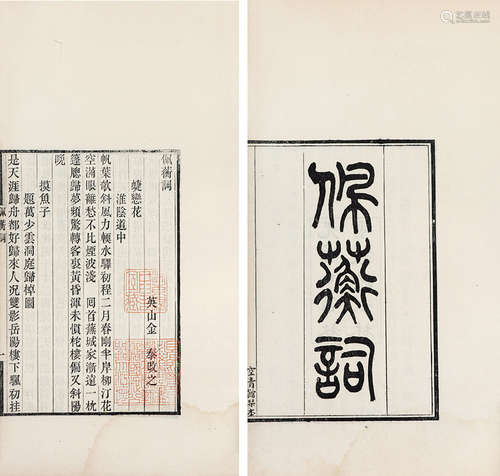 佩蘅詞
佩蘅詞
英山金 泰改之
蜨戀花
淮陰道中
帆葉欹斜風力頓水驛初程二月春剛半岸柳汀花
空滿眼離愁不比煙波淺 囘首蕪城家漸遠一枕
篷牕歸夢頻驚轉客裏黃昏渾未慣柁樓偏又斜陽
晚
摸魚子
題萬少雲洞庭歸棹圖
是天涯歸舟都好歸來人況雙影岳陽樓下颿初挂